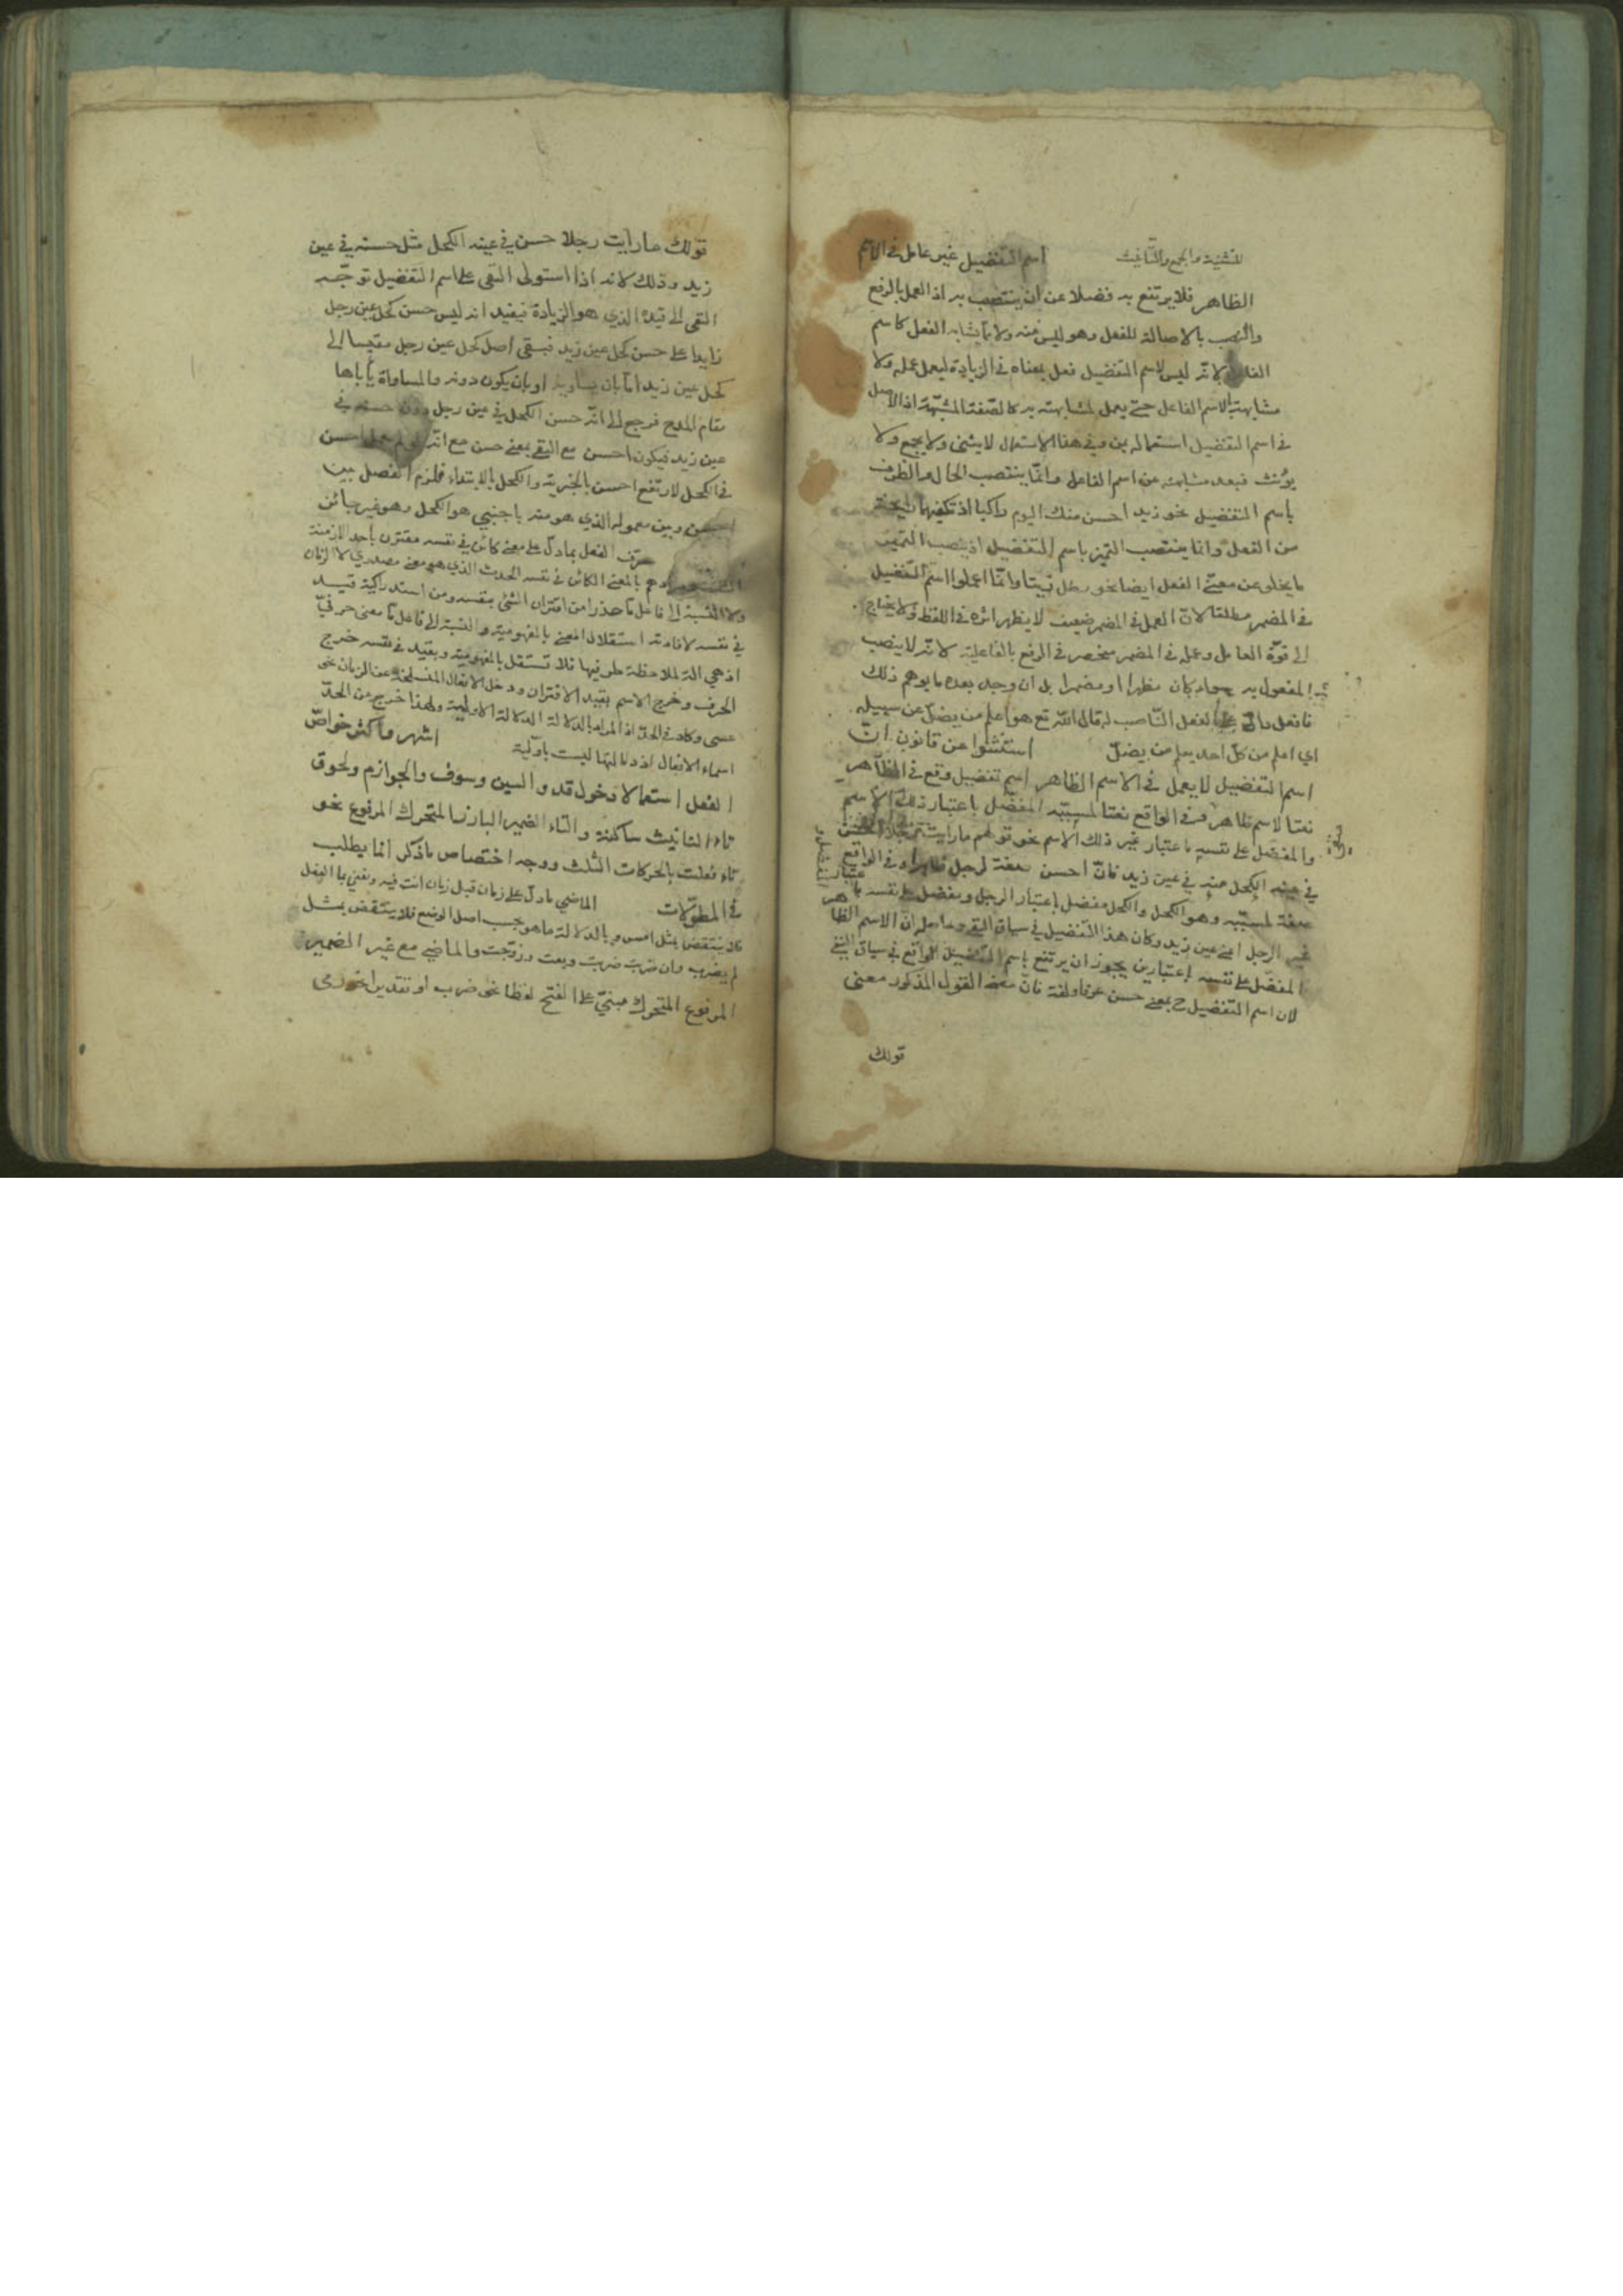 للتثنية والجمع والتأنيث اسم التفضيل غير عامل في الاسم
الظاهر فلا يرتفع به فضلا عن ان ينتصب به اذ العمل بالرفع
والنصب بالاصالة للفعل وهو ليس منه ولا مما يشابه الفعل كاسم
الفاعل لانه ليس لاسم التفضيل فعل بمعناه في الزيادة ليعمل عمله ولا
مشابهة لاسم الفاعل حتى يعمل لمشابهته به كالصفة المشبهة اذ الاصل
في اسم التفضيل استعماله بمن وفي هذا الاستعمال لا يثنى ولا يجمع ولا
يؤنث فبعد مشابهته عن اسم الفاعل وانما ينتصب الحال والظرف
باسم التفضيل نحو زيد احسن منك اليوم راكبا اذ تكفيهما رايحة
من الفعل وانما ينتصب التميز باسم التفضيل اذ ينصب التميز
ما يخلو عن معنى الفعل ايضا نحو رطل زيتا وانما اعملوا اسم التفضيل
في المضمر مطلقا لان العمل في المضمر ضعيف لا يظهر اثره في اللفظ فلا يحتاج
الى قوة العامل وعمله في المضمر منحصر في الرفع بالفاعلية لانه لا ينصب
المفعول به سواء كان مظهرا او مضمرا بل ان وجد بعده ما يوهم ذلك
فافعل دال على الفعل الناصب له قال الله تع هو اعلم من يضل عن سبيله
اي اعلم من كل احد يعلم من يضل استثنوا عن قانون ان
اسم التفضيل لا يعمل في الاسم الظاهر اسم تفضيل وقع في الظاهر
نعتا لاسم ظاهر وفي الواقع نعتا لمسببه المفضل باعتبار ذلك الاسم
والمفضل على نفسه باعتبار غير ذلك الاسم نحو قولهم ما رايت رجلا احسن
في عينه الكحل منه في عين زيد فان احسن صفة لرجل ظاهرا وفي الواقع
صفة لمسببه وهو الكحل والكحل مفضل باعتبار الرجل ومفضل على نفسه باعتبار
غير الرجل اعني عين زيد وكان هذا التفضيل في سياق النفي وحاصله ان الاسم الظاهر
المفضل على نفسه باعتبارين يجوز ان يرتفع باسم التفضيل الواقع في سياق النفي
لان اسم التفضيل ح بمعنى حسن عرفا ولغة فان معنى القول المذكور معنى
قولك
قولك ما رايت رجلا حسن في عينه الكحل مثل حسنه في عين
زيد وذلك لانه اذا استولى النفي على اسم التفضيل توجه
النفي الى قيده الذي هو الزيادة فيفيد انه ليس حسن كحل عين رجل
زايدا على حسن كحل عين زيد فبقي اصل كحل عين رجل مقيسا الى
كحل عين زيد اما بان يساويه او بان يكون دونه والمساواة يأباها
مقام المدح فرجع الى انه حسن الكحل في عين رجل دون حسنه في
عين زيد فيكون احسن مع النفي بمعنى حسن مع انه لو لم يعمل احسن
في الكحل لارتفع احسن بالخبرية والكحل بالابتداء فلزم الفصل بين
احسن وبين معموله الذي هو منه باجنبي هو الكحل وهو غير جائز
عرف الفعل بما دل على معنى كائن في نفسه مقترن باحد الازمنة
وهم بالمعنى الكائن في نفسه الحدث الذي هو معنى مصدري لا الزمان
ولا النسبة الى فاعل ما حذرا من اقتران الشئ بنفسه ومن استدراكية قيد
في نفسه لافادته استقلال المعنى بالمفهومية والنسبة الى فاعل ما معنى حرفي
اذ هي آلة لملاحظة طرفيها فلا تستقل بالمفهومية وبقيد في نفسه خرج
الحرف وخرج الاسم بقيد الاقتران ودخل الافعال المنسلخة عن الزمان نحو
عسى وكاد في الحد اذ المراد بالدلالة الدلالة الاولية ولهذا خرج من الحد
اسماء الافعال اذ دلالتها ليست باولية اشهر واكثر خواص
الفعل استعمالا دخول قد والسين وسوف والجوازم ولحوق
تاء التانيث ساكنة والتاء الضمير البارز المتحرك المرفوع نحو
تاء فعلت بالحركات الثلث ووجه اختصاص ما ذكر انما يطلب
في المطولات الماضي ما دل على زمان قبل زمان انت فيه ونعني بما الفعل
فلا ينتقض بمثل امس وبالدلالة ما هو بحسب اصل الوضع فلا ينتقض بمثل
لم يضرب وان ضربت ضربت وبعت وزوجت والماضي مع غير الضمير
المرفوع المتحرك مبني على الفتح لفظا نحو ضرب او تقديرا نحو رمى